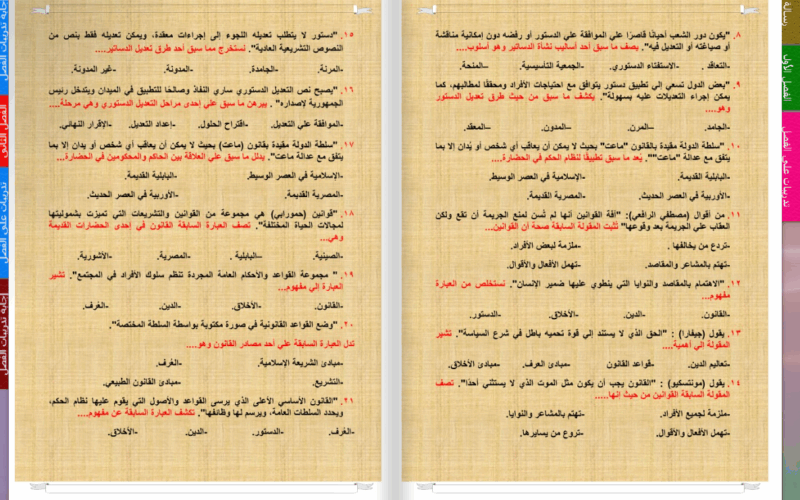 رسالة
الفصل الأول
تدريبات على الفصل
٨. "يكون دور الشعب أحيانًا قاصرًا علي الموافقة علي الدستور أو رفضه دون إمكانية مناقشة
أو صياغته أو التعديل فيه". يصف ما سبق أحد أساليب نشأة الدساتير وهو أسلوب....
-التعاقد. -الاستفتاء الدستوري. -الجمعية التأسيسية. –المنحة.
٩. "بعض الدول تسعي إلي تطبيق دستور يتوافق مع احتياجات الأفراد ومحققًا لمطالبهم، كما
يمكن إجراء التعديلات عليه بسهولة". يكشف ما سبق من حيث طرق تعديل الدستور
وهو....
-الجامد. –المرن. –المدون. –المعقد.
١٠. "سلطة الدولة مقيدة بالقانون "ماعت" بحيث لا يمكن أن يعاقب أي شخص أو يُدان إلا بما
يتفق مع عدالة ماعت"". يُعد ما سبق تطبيقًا لنظام الحكم في الحضارة....
-البابلية القديمة. -الإسلامية في العصر الوسيط.
-الأوربية في العصر الحديث. -المصرية القديمة.
١١. من أقوال (مصطفي الرافعي): "آفة القوانين أنها لم تُسن لمنع الجريمة أن تقع ولكن
العقاب علي الجريمة بعد وقوعها" تُثبت المقولة السابقة صحة أن القوانين...
-تردع من يخالفها. -ملزمة لبعض الأفراد.
-تهتم بالمشاعر والمقاصد. -تهمل الأفعال والأقوال.
١٢. "الاهتمام بالمقاصد والنوايا التي ينطوي عليها ضمير الإنسان". نستخلص من العبارة
مفهوم...
-القانون. -الدين. -الأخلاق. -الدستور.
١٣. يقول (جيفارا) : "الحق الذي لا يستند إلي قوة تحميه باطل في شرع السياسة". تشير
المقولة إلي أهمية....
-تعاليم الدين. -قواعد القانون -مبادئ العرف. -مبادئ الأخلاق.
١٤. يقول (مونتسكيو) : "القانون يجب أن يكون مثل الموت الذي لا يستثني أحدًا". تصف
المقولة السابقة القوانين من حيث إنها.....
-ملزمة لجميع الأفراد. -تهتم بالمشاعر والنوايا.
-تهمل الأفعال والأقوال. -تروع من يسايرها.
١٥. "دستور لا يتطلب تعديله اللجوء إلى إجراءات معقدة، ويمكن تعديله فقط بنص من
النصوص التشريعية العادية". نستخرج مما سبق أحد طرق تعديل الدساتير....
-المرنة. -الجامدة. -المدونة. -غير المدونة.
١٦. "يصبح نص التعديل الدستوري ساري النفاذ وصالحًا للتطبيق في الميدان ويتدخل رئيس
الجمهورية لإصداره" . يبرهن ما سبق علي إحدى مراحل التعديل الدستوري وهي مرحلة....
-الموافقة علي التعديل. -اقتراح الحلول. -إعداد التعديل. -الإقرار النهائي.
١٧. "سلطة الدولة مقيدة بقانون (ماعت) بحيث لا يمكن أن يعاقب أي شخص أو يدان إلا بما
يتفق مع عدالة ماعت". يدلل ما سبق علي العلاقة بين الحاكم والمحكومين في الحضارة...
-الإسلامية في العصر الوسيط. -البابلية القديمة.
-المصرية القديمة. -الأوربية في العصر الحديث.
١٨. "قوانين (حمورابي) هي مجموعة من القوانين والتشريعات التي تميزت بشموليتها
لمجالات الحياة المختلفة". تصف العبارة السابقة القانون في إحدى الحضارات القديمة
وهي...
-الصينية. –البابلية . -المصرية. -الأشورية.
١٩. " مجموعة القواعد والأحكام العامة المجردة تنظم سلوك الأفراد في المجتمع". تشير
العبارة إلي مفهوم...
-القانون. -الأخلاق. -الدين. -العُرف.
٢٠. "وضع القواعد القانونية في صورة مكتوبة بواسطة السلطة المختصة".
تدل العبارة السابقة علي أحد مصادر القانون وهو....
-مبادئ الشريعة الإسلامية. -العُرف.
-التشريع. -مبادئ القانون الطبيعي.
٢١. "القانون الأساسي الأعلى الذي يرسى القواعد والأصول التي يقوم عليها نظام الحكم،
ويحدد السلطات العامة، ويرسم لها وظائفها". تكشف العبارة السابقة عن مفهوم....
-العُرف. -الدستور. -الدين. -الأخلاق.
إجابة تدريبات الفصل
الفصل الثاني
تدريبات على الفصل
إجابة تدريبات الفصل